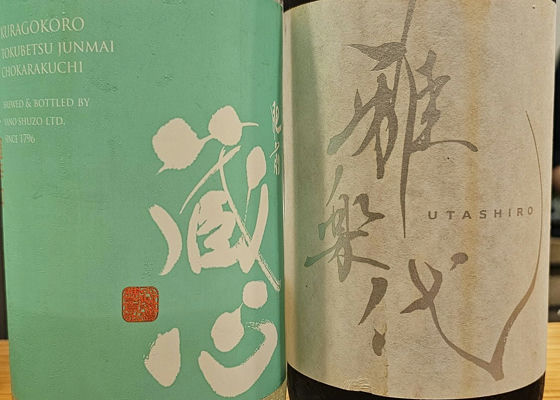 KURAGOKORO
TOKUBETSU JUNMAI
CHOKARAKUCHI
BREWED & BOTTLED BY
YANO SHUZO LTD.
SINCE 1796
肥前
蔵心
雅楽代
UTASHIRO